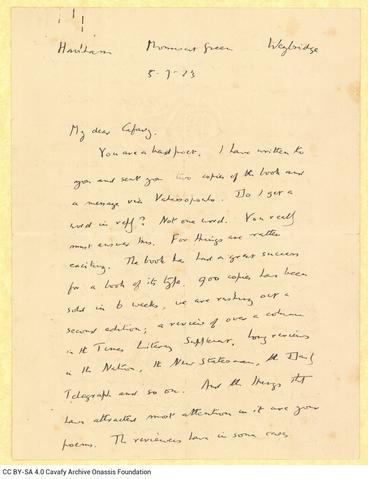 Harnham Monument Green Weybridge
5-7-23
My dear Cafavy.
You are a bad poet. I have written to
you and sent you two copies of the book and
a message via Valassopoulo. Do I get a
word in reply? Not one word. You really
must answer this. For things are rather
exciting. The book has had a great success
for a book of its type. 900 copies has been
sold in 6 weeks, we are rushing out a
second edition; a review of over a column
in the Times Literary Supplement, long reviews
in the Nation, the New Statesman, the Daily
Telegraph and so on. And the things that
have attracted most attention in it are your
poems. The reviewers have in some cases
CC BY-SA 4.0 Cavafy Archive Onassis Foundation